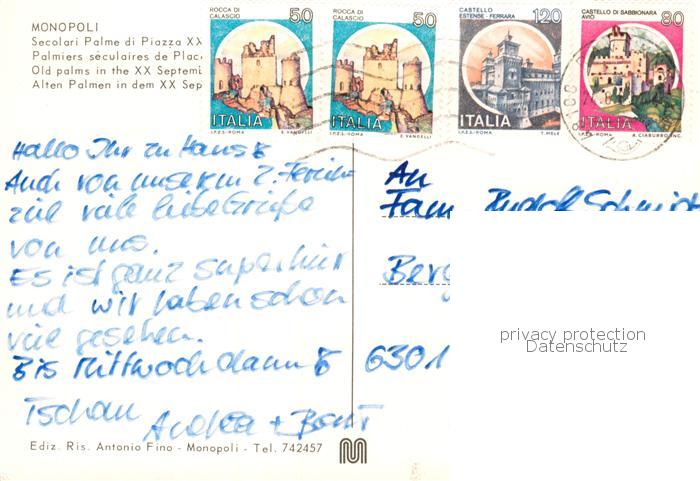 MONOPOLI
Secolari Palme di Piazza XX
Palmiers séculaires de Plac
Old palms in the XX Septemb
Alten Palmen in dem XX Sep
ROCCA DI CALASCIO
50
ITALIA
I.P.Z.S.-ROMA E. VANGELLI
ROCCA DI CALASCIO
50
ITALIA
I.P.Z.S.-ROMA E. VANGELLI
CASTELLO ESTENSE-FERRARA
120
ITALIA
I.P.Z.S.-ROMA T. MELE
CASTELLO DI SABBIONARA AVIO
80
ITALIA
I.P.Z.S.-ROMA A. CIABURRO INC.
Hallo Ihr zu Haus
Auch von unserem 2. Ferien-
ziel viele liebe Grüße
von uns.
Es ist ganz super hier
und wir haben schon
viel gesehen.
Bis Mittwoch dann
Tschau
Andrea +
An
Fam Rudolf Schmidt
Berg
6301
privacy protection
Datenschutz
Ediz. Ris. Antonio Fino - Monopoli - Tel. 742457